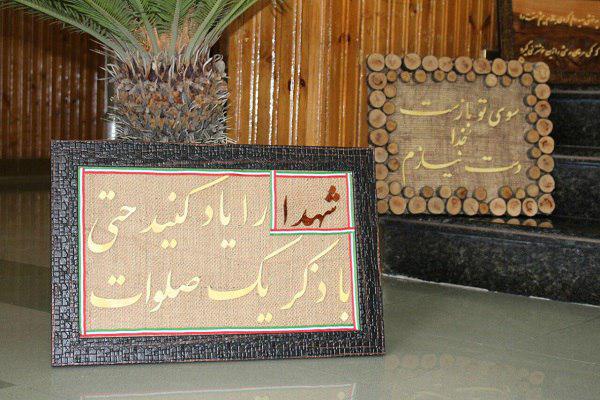 شهدا را یاد کنید حتی
با ذکر یک صلوات
سوی تو بازست
خدا
دست نیازم